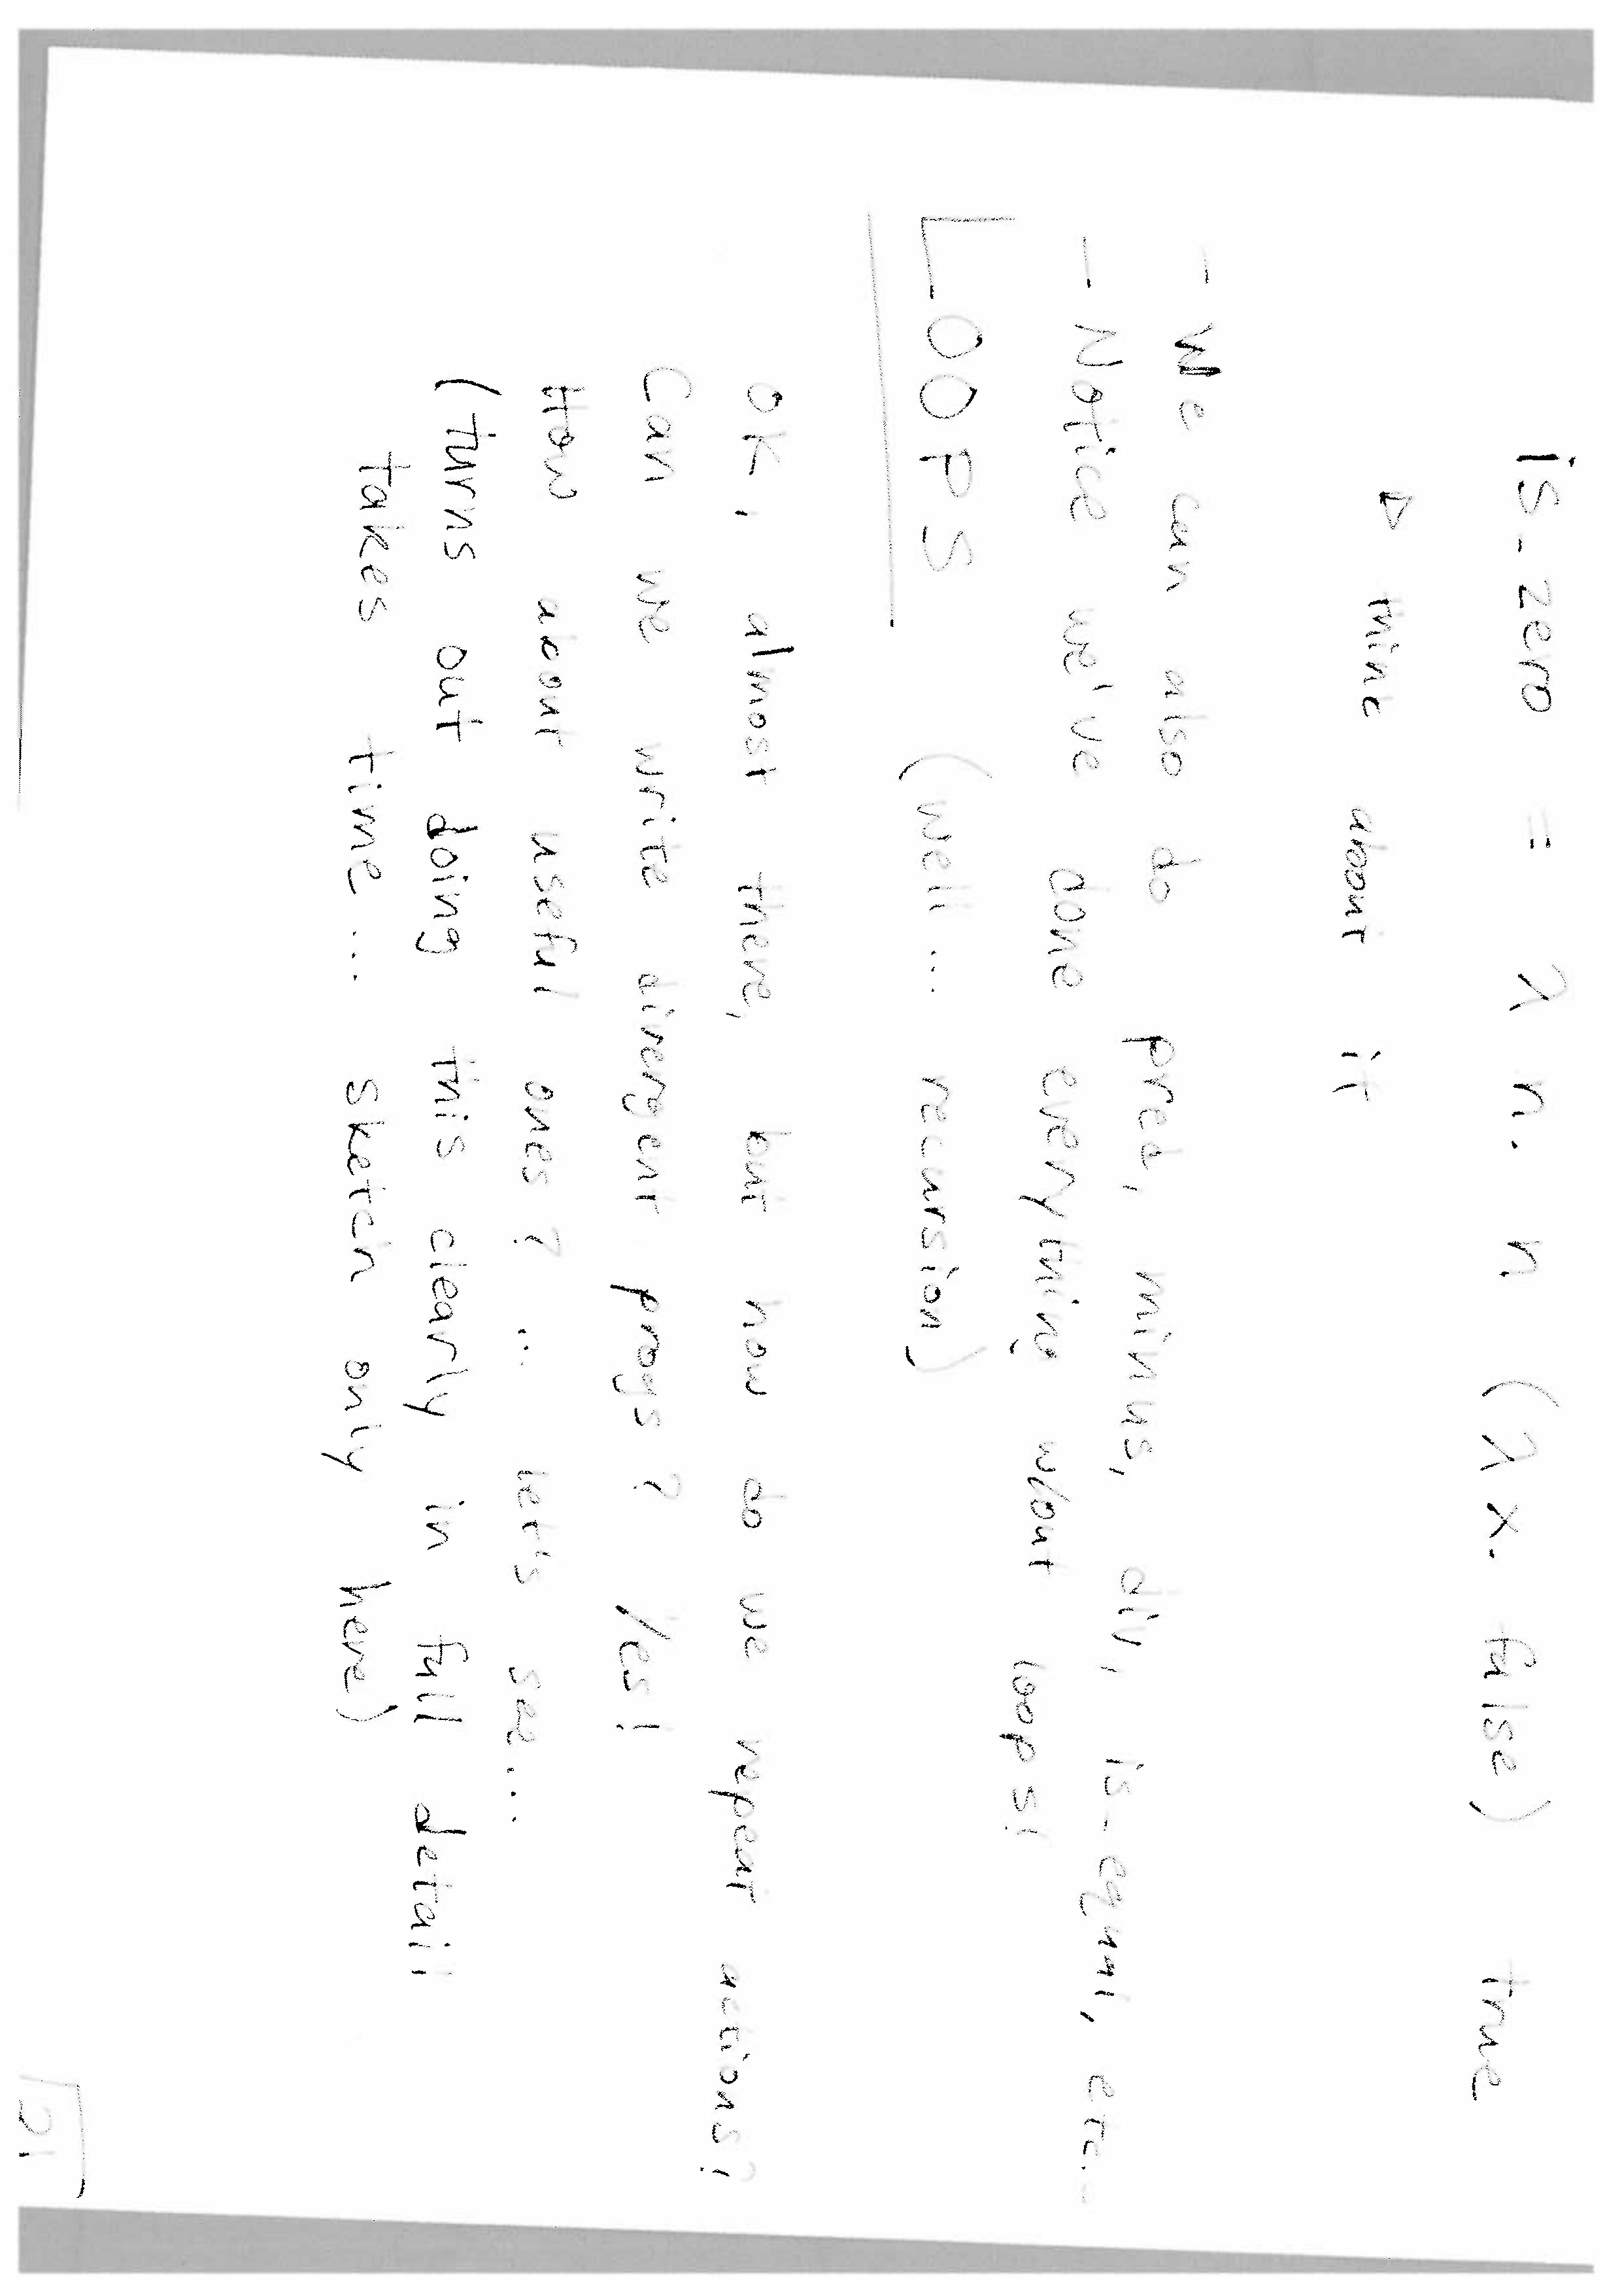 is_zero = λn. n (λx. false) true
▷ think about it
- We can also do pred, minus, div, is_equal, etc...
- Notice we've done everything w/out loops!
LOOPS (well... recursion)
OK, almost there, but how do we repeat actions?
Can we write divergent progs? Yes!
How about useful ones? ... let's see...
(turns out doing this clearly in full detail
takes time... sketch only here)